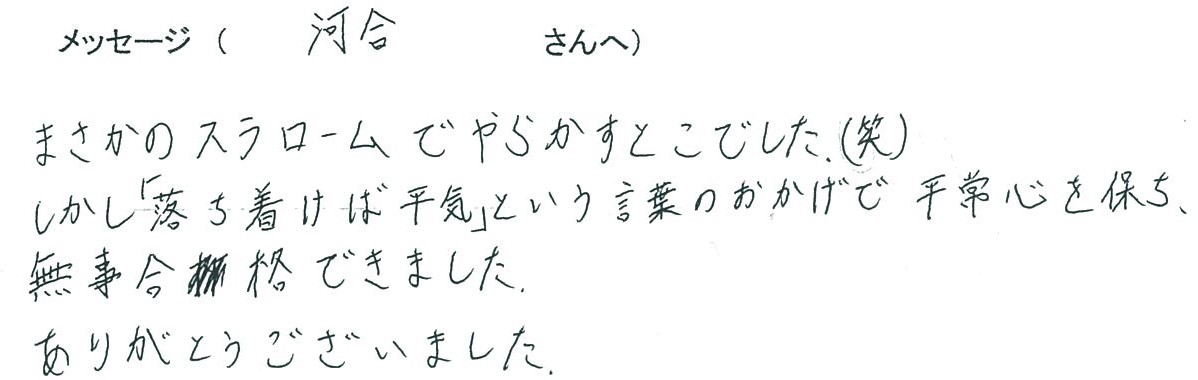 メッセージ( 河合 さんへ)
まさかのスラロームでやらかすとこでした.(笑)
しかし「落ち着けば平気」という言葉のおかげで平常心を保ち、
無事合格できました.
ありがとうございました.